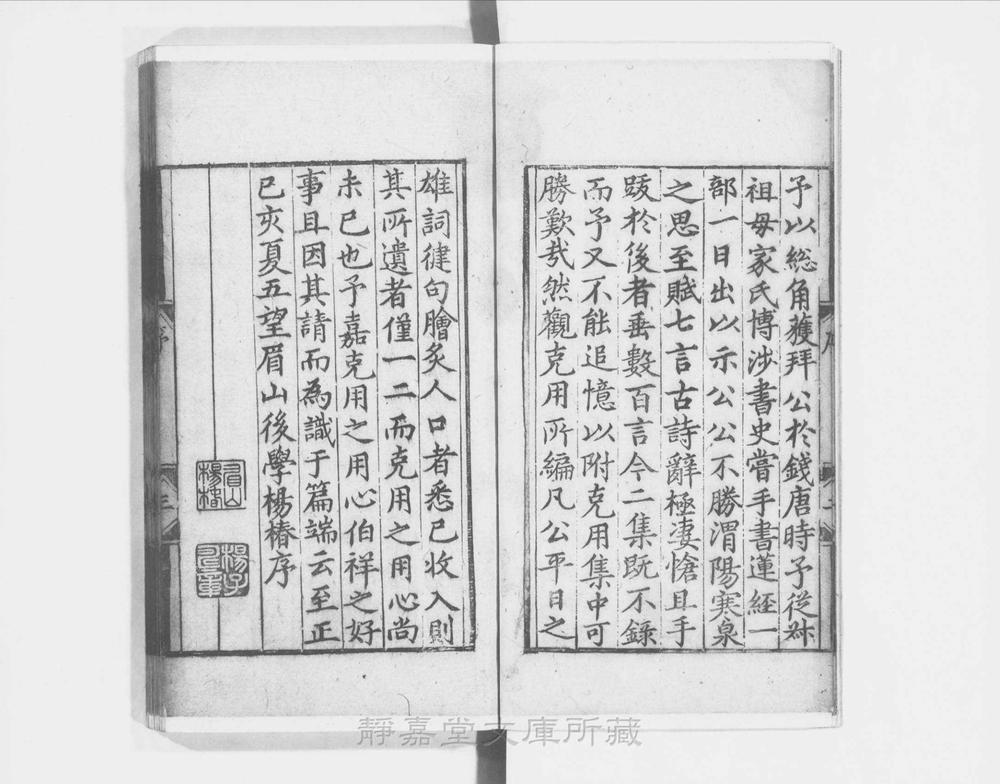 予以総角獲拜　公於錢唐時予從叔
祖母家氏博涉書史嘗手書蓮經一
部一日出以示公公不勝渭陽寒泉
之思至賦七言古詩辭極凄愴且手
跋於後者垂數百言今二集既不錄
而予又不能追憶以附克用集中可
勝歎㢤然觀克用所編凡公平日之
序
二
雄詞健句膾炙人口者悉已收入則
其所遺者僅一二而克用之用心尚
未已也予嘉克用之用心伯祥之好
事且因其請而為識于篇端云至正
已亥夏五望眉山後學楊椿序
眉山楊椿
楊子
序
三
靜嘉堂文庫所藏